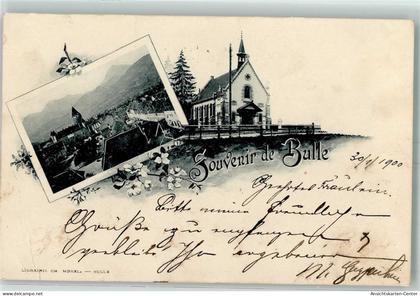 Souvenir de Bulle
30/1/1900
Geehrtes Fräulein
Bitte meine freundlichen
Grüße zu empfangen
verbleibe Ihr ergebener
LIBRAIRIE CH. MOREL — BULLE
www.ansichtskartenversand.com
Ansichtskarten-Center